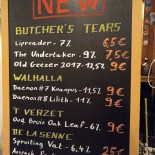 NEW
BUTCHER'S TEARS
Lipreader - 7% 6,5€
The Undertaker - 9% 7,5€
Old Geezer 2017 - 12,5% 9€
WALHALLA
Daemon #7 Krampus - 11% 9€
Daemon #8 Lilith - 11% 9€
'T VERZET
Oud Bruin Oak Leaf - 6% 9€
DE LA SENNE
Spruiting Val - 6,4% 25€